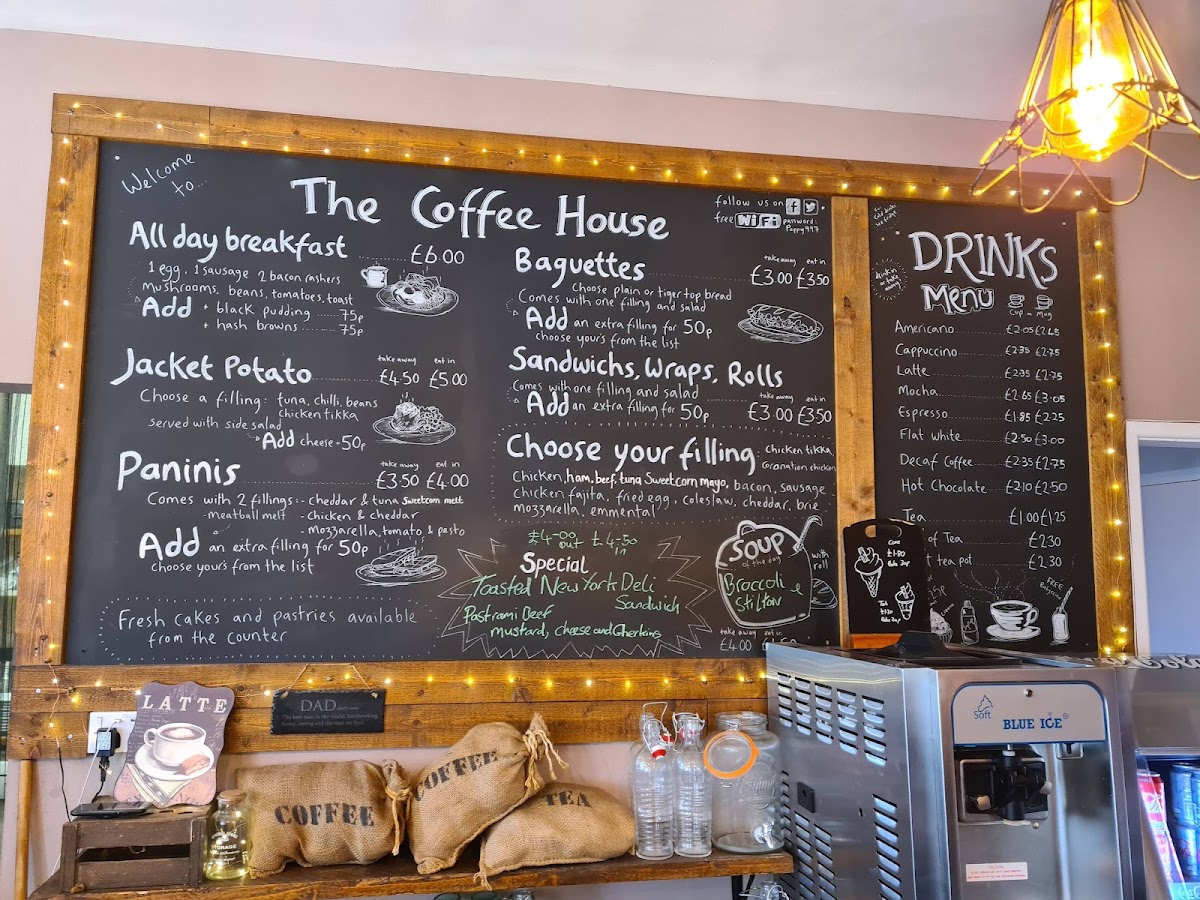 Welcome
to...
The Coffee House
follow us on
free WiFi password:
All day breakfast ..... £6.00
1 egg, 1 sausage 2 bacon rashers
mushrooms, beans, tomatoes, toast
Add + black pudding ...... 75p
+ hash browns ...... 75p
Jacket Potato
take away eat in
£4.50 £5.00
Choose a filling: tuna, chilli, beans
chicken tikka
served with side salad
Add cheese - 50p
Paninis
take away eat in
£3.50 £4.00
Comes with 2 fillings:- cheddar & tuna sweetcorn melt
- meatball melt - chicken & cheddar
- mozzarella, tomato & pesto
Add an extra filling for 50p
choose yours from the list
Fresh cakes and pastries available
from the counter
Baguettes
take away eat in
£3.00 £3.50
Choose plain or tiger top bread
Comes with one filling and salad
Add an extra filling for 50p
choose yours from the list
Sandwichs, Wraps, Rolls
Comes with one filling and salad
take away eat in
Add an extra filling for 50p £3.00 £3.50
Choose your filling
chicken tikka,
Coronation chicken
Chicken, ham, beef, tuna sweetcorn mayo, bacon, sausage
chicken fajita, fried egg, coleslaw, cheddar, brie
mozzarella, emmental
£4-00 £4-50
out in
Special
Toasted New York Deli
Sandwich
Pastrami Beef
mustard, cheese and Gherkins
SOUP
of the day
Broccoli &
Stilton
with
roll
take away eat in
£4.00
drink in
or take
away
DRINKS
Menu
Cup - Mug
Americano £2.05 £2.45
Cappuccino £2.35 £2.75
Latte £2.35 £2.75
Mocha £2.65 £3.05
Espresso £1.85 £2.25
Flat white £2.50 £3.00
Decaf Coffee £2.35 £2.75
Hot Chocolate £2.10 £2.50
Tea £1.00 £1.25
of Tea £2.30
tea pot £2.30
FREE
£1.80
LATTE
DAD
COFFEE
COFFEE
TEA
Soft
BLUE ICE